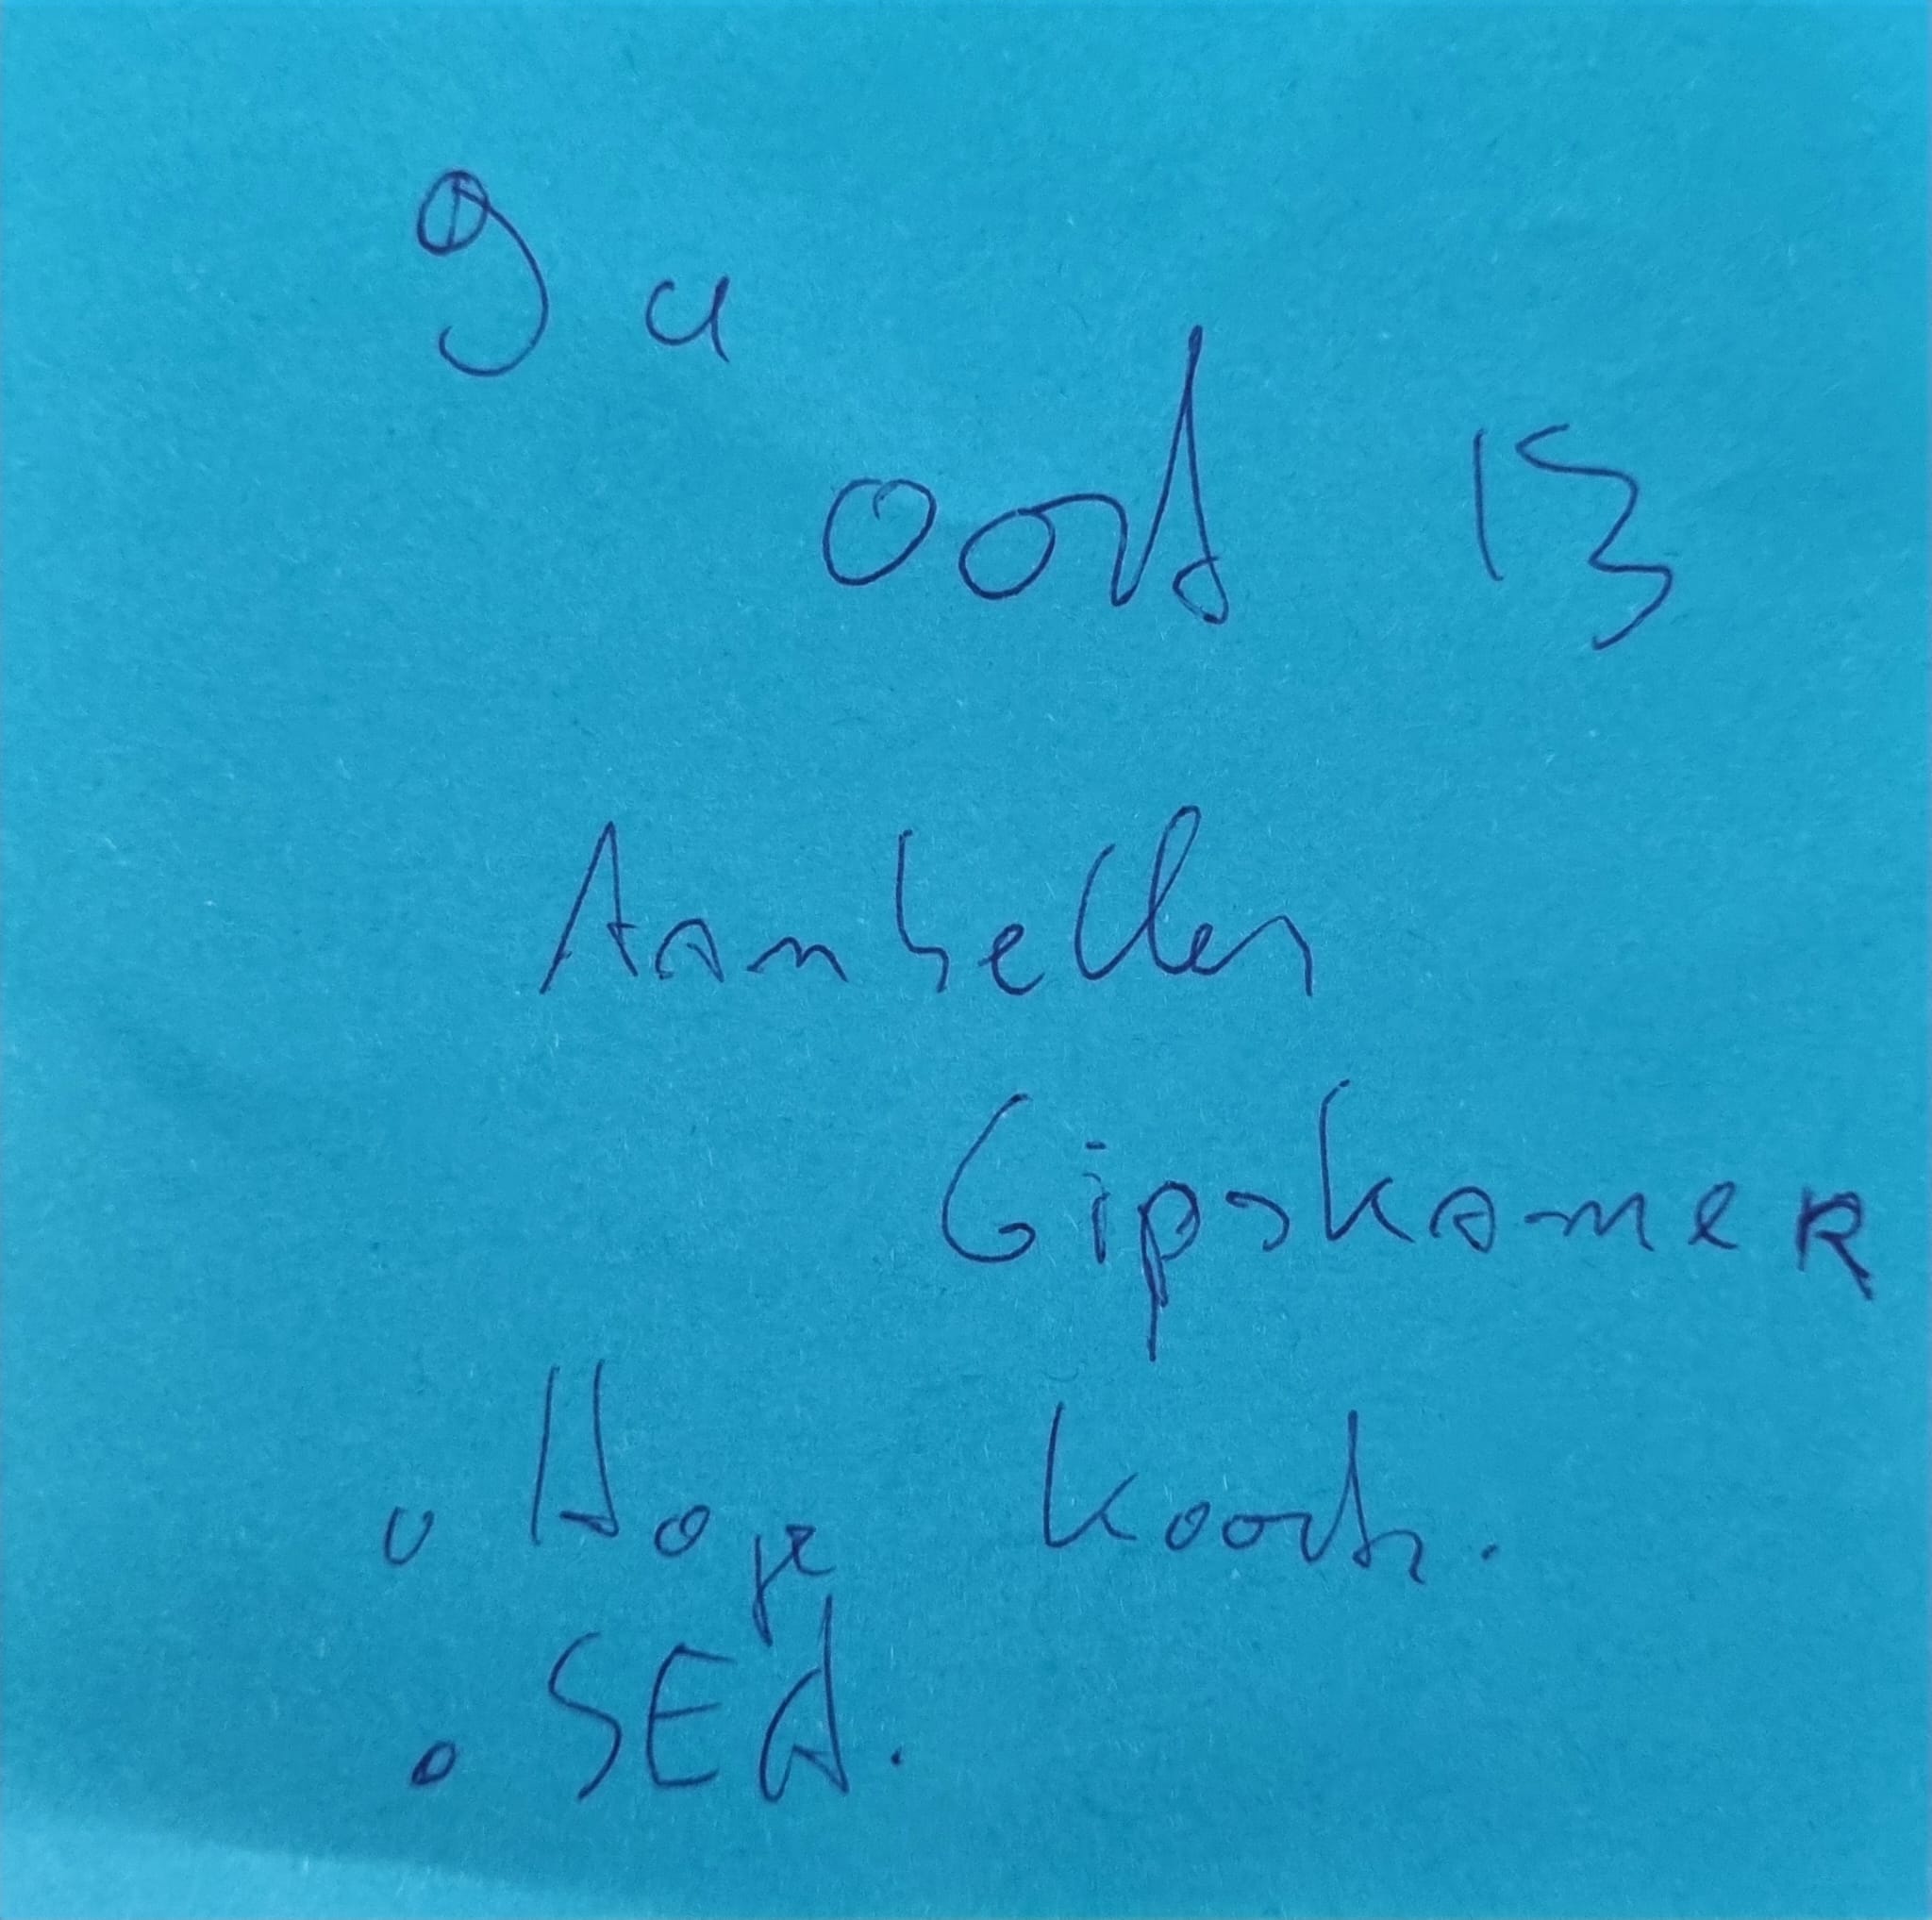 9 u
oost 13
Aanbellen
Gipskamer
o Hoge koorts.
o SEH.